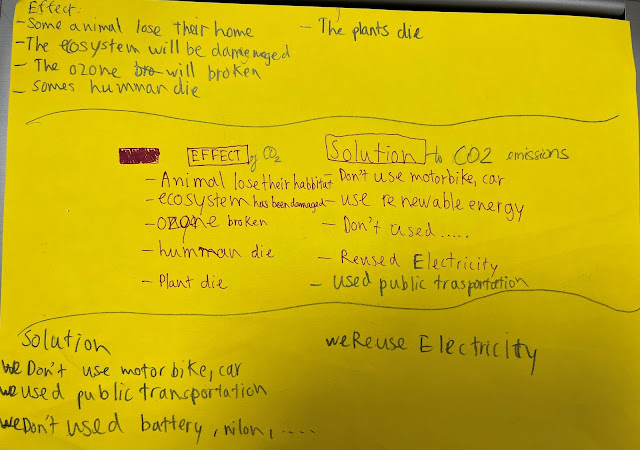 Effect:
- Some animal lose their home
- The ecosystem will be damenaged
- The ozone bro will broken
- Somes humman die
- The plants die
EFFECT of CO2
- Animal lose their habbitat
- ecosystem has been damaged
- ozone broken
- humman die
- Plant die
Solution to CO2 emissions
- Don't use motorbike, car
- use renewable energy
- Don't used .....
- Reused Electricity
- used public trasportation
Solution
we Don't use motorbike, car
we used public transportation
we Don't used battery, nilon, .....
we Reuse Electricity